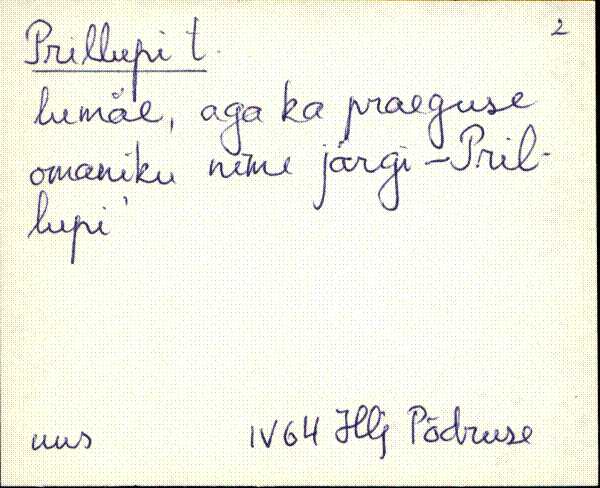 2
Prillupi t.
lumäe, aga ka praeguse
omaniku nime järgi – Pril-
lupi'
uus
IV 64 Hlj Põdruse